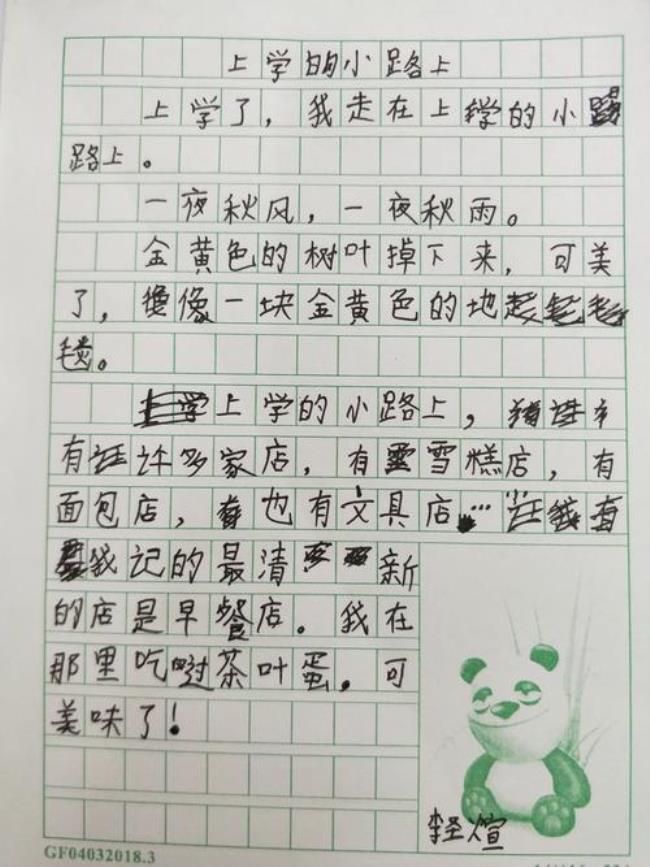 上学的小路上
上学了，我走在上学的小
路上。
一夜秋风，一夜秋雨。
金黄色的树叶掉下来，可美
了，像一块金黄色的地
毯。
上学的小路上，
有许多家店，有雪糕店，有
面包店，也有文具店…
我记的最清新
的店是早餐店。我在
那里吃过茶叶蛋，可
美味了！
GF04032018.3